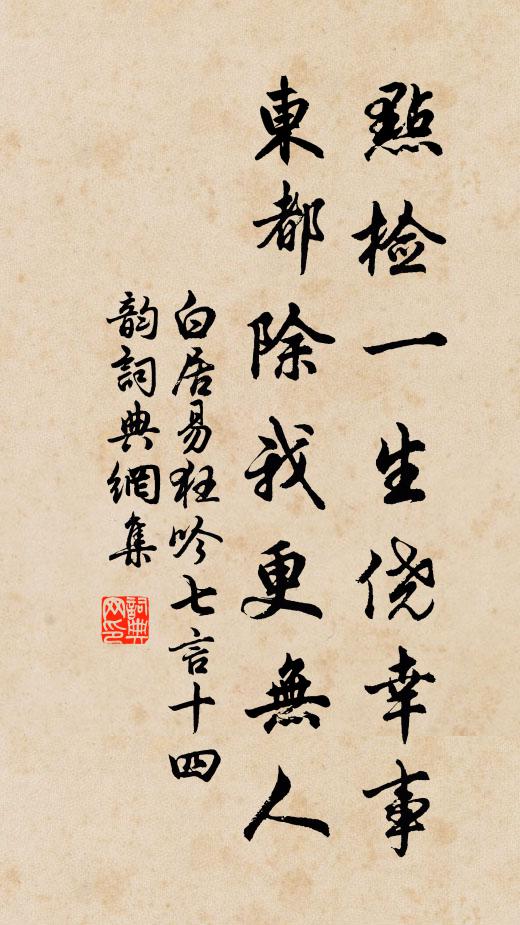 點檢一生侥幸事
東都除我更無人
白居易狂吟七言十四
韵詞典網集
詞典网印